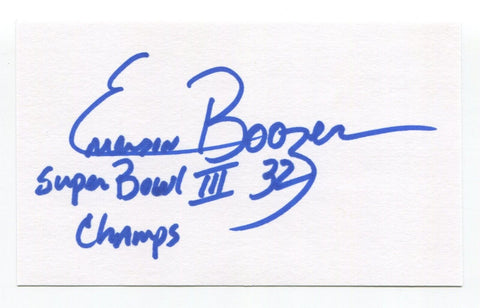 Emerson Boozer
Super Bowl III 32
Champs